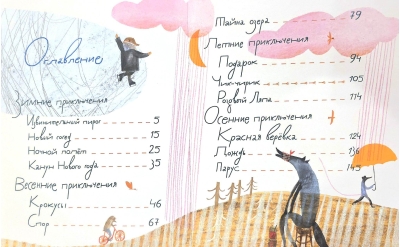 Оглавление
Зимние приключения
Извинительный пирог 5
Новый год 15
Ночной полёт 25
Канун Нового года 35
Весенние приключения
Крокусы 46
Спор 67
Тайна озера 79
Летние приключения
Подарок 94
Чик-чирик 105
Розовой Лапа 114
Осенние приключения
Красная верёвка 124
Дождь 136
Парус 145